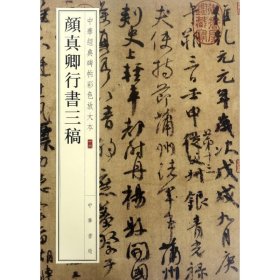 中華經典碑帖彩色放大本
顔真卿行書三稿
中華書局
元元年歲次戊戌九月
三日壬申第十三從父銀青光祿
使持節蒲州諸軍事蒲州
車都尉丹楊縣開國